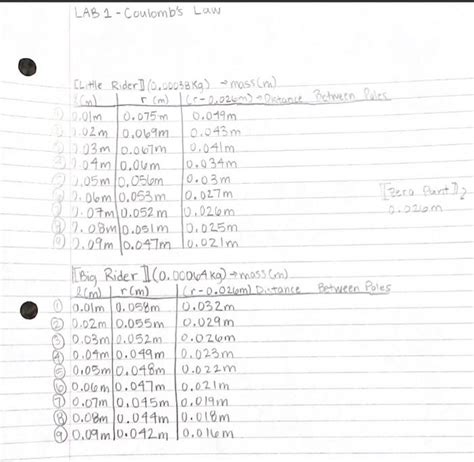 LAB 1 - Coulomb's Law
[Little Rider] (0.00038kg) → mass(m)
l(m) | r (m) | (r-0.026m) → Distance Between Poles
① 0.01m | 0.075m | 0.049m
② 0.02m | 0.069m | 0.043m
③ 0.03m | 0.067m | 0.041m
④ 0.04m | 0.06m | 0.034m
⑤ 0.05m | 0.056m | 0.03m
⑥ 0.06m | 0.053m | 0.027m
[Zero Point]
⑦ 0.07m | 0.052m | 0.026m
0.026m
⑧ 0.08m | 0.051m | 0.025m
⑨ 0.09m | 0.047m | 0.021m
[Big Rider] (0.00064kg) → mass(m)
l(m) | r(m) | (r-0.026m) Distance Between Poles
① 0.01m | 0.058m | 0.032m
② 0.02m | 0.055m | 0.029m
③ 0.03m | 0.052m | 0.026m
④ 0.04m | 0.049m | 0.023m
⑤ 0.05m | 0.048m | 0.022m
⑥ 0.06m | 0.047m | 0.021m
⑦ 0.07m | 0.045m | 0.019m
⑧ 0.08m | 0.044m | 0.018m
⑨ 0.09m | 0.042m | 0.016m